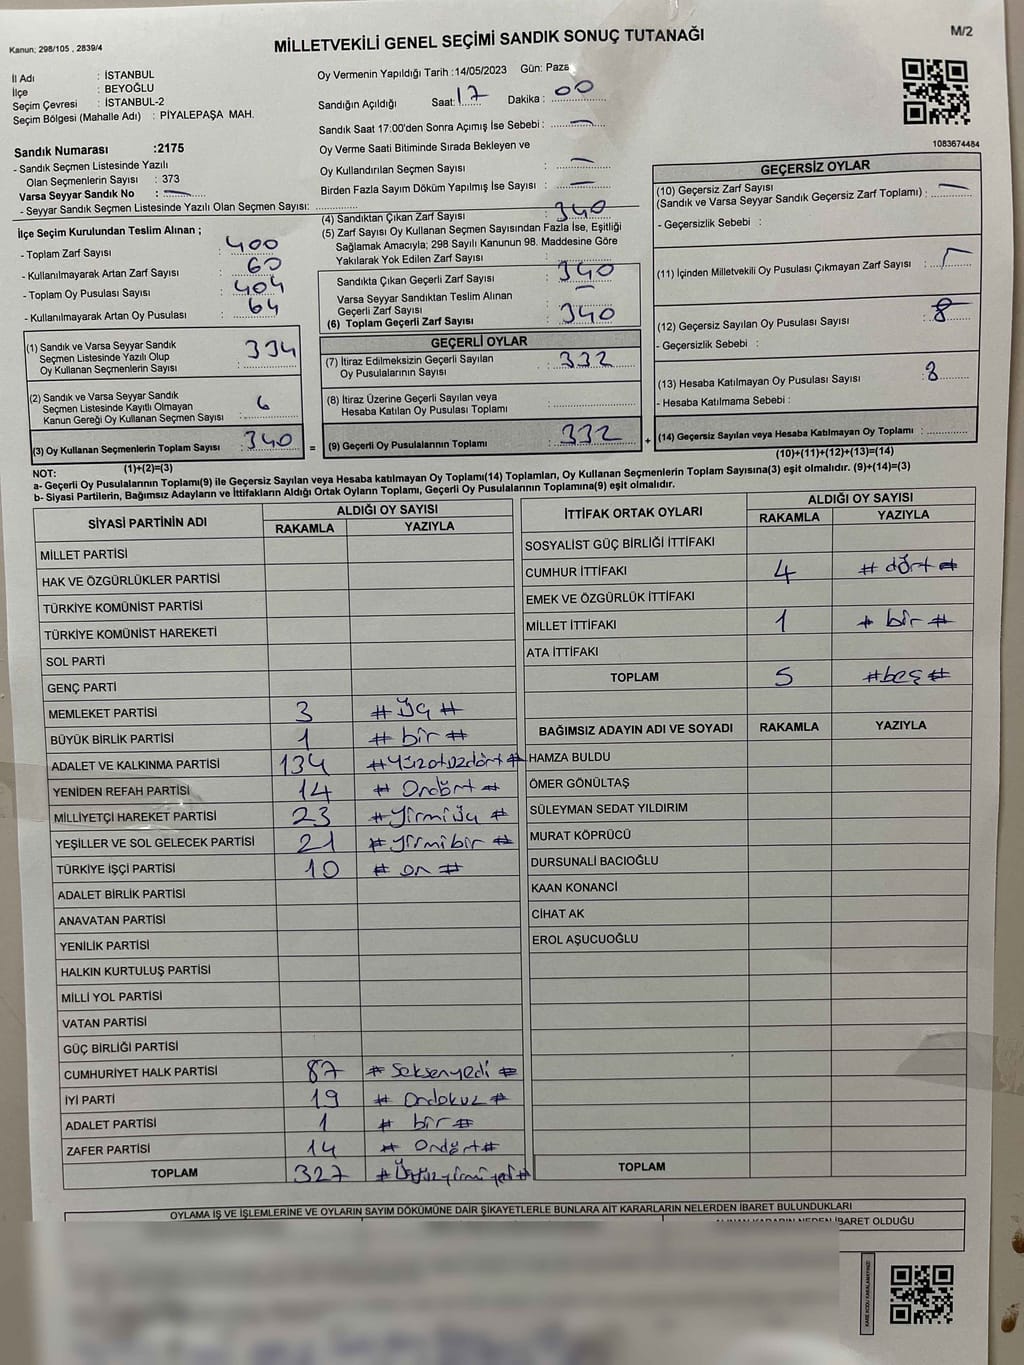 Kanun; 298/105 , 2839/4
MİLLETVEKİLİ GENEL SEÇİMİ SANDIK SONUÇ TUTANAĞI
M/2
İl Adı : İSTANBUL
İlçe : BEYOĞLU
Seçim Çevresi : İSTANBUL-2
Seçim Bölgesi (Mahalle Adı) : PİYALEPAŞA MAH.
Sandık Numarası :2175
- Sandık Seçmen Listesinde Yazılı
Olan Seçmenlerin Sayısı : 373
Varsa Seyyar Sandık No : —
- Seyyar Sandık Seçmen Listesinde Yazılı Olan Seçmen Sayısı:
Oy Vermenin Yapıldığı Tarih :14/05/2023 Gün: Paza
Sandığın Açıldığı Saat: 17 Dakika : 00
Sandık Saat 17:00'den Sonra Açımış İse Sebebi : —
Oy Verme Saati Bitiminde Sırada Bekleyen ve
Oy Kullandırılan Seçmen Sayısı : —
Birden Fazla Sayım Döküm Yapılmış İse Sayısı : —
1083674484
İlçe Seçim Kurulundan Teslim Alınan ;
- Toplam Zarf Sayısı : 400
- Kullanılmayarak Artan Zarf Sayısı : 60
- Toplam Oy Pusulası Sayısı : 404
- Kullanılmayarak Artan Oy Pusulası : 64
(1) Sandık ve Varsa Seyyar Sandık
Seçmen Listesinde Yazılı Olup
Oy Kullanan Seçmenlerin Sayısı : 334
(2) Sandık ve Varsa Seyyar Sandık
Seçmen Listesinde Kayıtlı Olmayan
Kanun Gereği Oy Kullanan Seçmen Sayısı : 6
(3) Oy Kullanan Seçmenlerin Toplam Sayısı : 340
(1)+(2)=(3)
(4) Sandıktan Çıkan Zarf Sayısı : 340
(5) Zarf Sayısı Oy Kullanan Seçmen Sayısından Fazla İse, Eşitliği
Sağlamak Amacıyla; 298 Sayılı Kanunun 98. Maddesine Göre
Yakılarak Yok Edilen Zarf Sayısı :
Sandıkta Çıkan Geçerli Zarf Sayısı : 340
Varsa Seyyar Sandıktan Teslim Alınan
Geçerli Zarf Sayısı : —
(6) Toplam Geçerli Zarf Sayısı : 340
GEÇERLİ OYLAR
(7) İtiraz Edilmeksizin Geçerli Sayılan
Oy Pusulalarının Sayısı : 332
(8) İtiraz Üzerine Geçerli Sayılan veya
Hesaba Katılan Oy Pusulası Toplamı :
= (9) Geçerli Oy Pusulalarının Toplamı : 332
GEÇERSİZ OYLAR
(10) Geçersiz Zarf Sayısı
(Sandık ve Varsa Seyyar Sandık Geçersiz Zarf Toplamı) : —
- Geçersizlik Sebebi :
(11) İçinden Milletvekili Oy Pusulası Çıkmayan Zarf Sayısı :
(12) Geçersiz Sayılan Oy Pusulası Sayısı : 8
- Geçersizlik Sebebi :
(13) Hesaba Katılmayan Oy Pusulası Sayısı : 8
- Hesaba Katılmama Sebebi :
+ (14) Geçersiz Sayılan veya Hesaba Katılmayan Oy Toplamı :
(10)+(11)+(12)+(13)=(14)
NOT:
a- Geçerli Oy Pusulalarının Toplamı(9) ile Geçersiz Sayılan veya Hesaba katılmayan Oy Toplamı(14) Toplamları, Oy Kullanan Seçmenlerin Toplam Sayısına(3) eşit olmalıdır. (9)+(14)=(3)
b- Siyasi Partilerin, Bağımsız Adayların ve İttifakların Aldığı Ortak Oyların Toplamı, Geçerli Oy Pusulalarının Toplamına(9) eşit olmalıdır.
SİYASİ PARTİNİN ADI ALDIĞI OY SAYISI
RAKAMLA YAZIYLA
MİLLET PARTİSİ
HAK VE ÖZGÜRLÜKLER PARTİSİ
TÜRKİYE KOMÜNİST PARTİSİ
TÜRKİYE KOMÜNİST HAREKETİ
SOL PARTİ
GENÇ PARTİ
MEMLEKET PARTİSİ 3 #Üç#
BÜYÜK BİRLİK PARTİSİ 1 #bir#
ADALET VE KALKINMA PARTİSİ 134 #Yüzotuzdört#
YENİDEN REFAH PARTİSİ 14 #Ondört#
MİLLİYETÇİ HAREKET PARTİSİ 23 #Yirmiüç#
YEŞİLLER VE SOL GELECEK PARTİSİ 21 #yirmibir#
TÜRKİYE İŞÇİ PARTİSİ 10 #on#
ADALET BİRLİK PARTİSİ
ANAVATAN PARTİSİ
YENİLİK PARTİSİ
HALKIN KURTULUŞ PARTİSİ
MİLLİ YOL PARTİSİ
VATAN PARTİSİ
GÜÇ BİRLİĞİ PARTİSİ
CUMHURİYET HALK PARTİSİ 87 #Seksenyedi#
İYİ PARTİ 19 #Ondokuz#
ADALET PARTİSİ 1 #bir#
ZAFER PARTİSİ 14 #Ondört#
TOPLAM 327 #Üçyüzyirmiyedi#
İTTİFAK ORTAK OYLARI ALDIĞI OY SAYISI
RAKAMLA YAZIYLA
SOSYALİST GÜÇ BİRLİĞİ İTTİFAKI
CUMHUR İTTİFAKI 4 #dört#
EMEK VE ÖZGÜRLÜK İTTİFAKI
MİLLET İTTİFAKI 1 #bir#
ATA İTTİFAKI
TOPLAM 5 #beş#
BAĞIMSIZ ADAYIN ADI VE SOYADI RAKAMLA YAZIYLA
HAMZA BULDU
ÖMER GÖNÜLTAŞ
SÜLEYMAN SEDAT YILDIRIM
MURAT KÖPRÜCÜ
DURSUNALİ BACIOĞLU
KAAN KONANCİ
CİHAT AK
EROL AŞUCUOĞLU
TOPLAM
OYLAMA İŞ VE İŞLEMLERİNE VE OYLARIN SAYIM DÖKÜMÜNE DAİR ŞİKAYETLERLE BUNLARA AİT KARARLARIN NELERDEN İBARET BULUNDUKLARI
ALINAN KARARIN NEDEN İBARET OLDUĞU